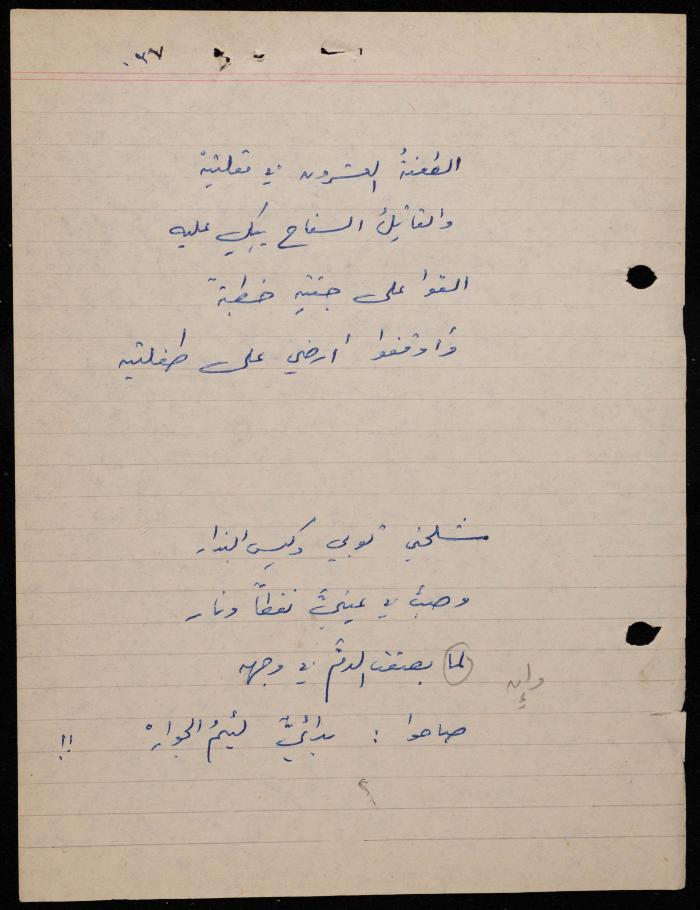 ٠٣٧
الطعنةُ العشرون في مقلتيهْ
والقاتِلُ السفاح يبكي عليه
القوا على جثتِهِ خطبةً
وَأوقفوا أرضي على طفلتيه
شلحني ثوبي وكيس البذار
وصبَّ في عينيَّ نفطاً ونار
لما بصقت الدمَّ في وجهه
وإن
صاحوا : بدائيٌّ لئيمُ الجوارْ !!
؟